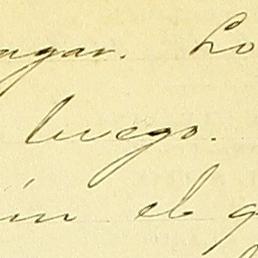 agar. Lo
luego.
ún el q